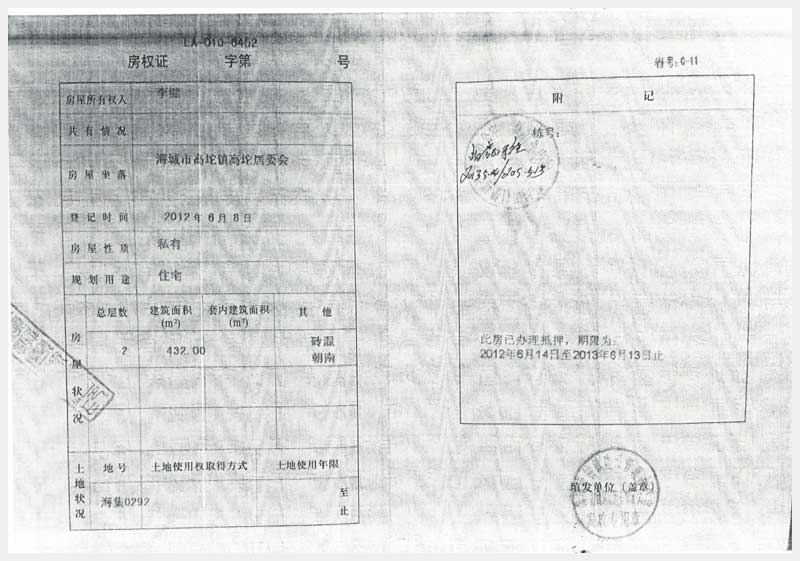 LA-010-6402
房权证 字第 号
房屋所有权人
共有情况
房屋坐落 海城市高坨镇高坨居委会
登记时间 2012年6月8日
房屋性质 私有
规划用途 住宅
房屋状况
总层数 建筑面积(m²) 套内建筑面积(m²) 其他
2 432.00 砖混
朝南
土地状况
地号 土地使用权取得方式 土地使用年限
海集0292 至
止
附记
栋号:
此房已办理抵押，期限为:
2012年6月14日至2013年6月13日止
填发单位（盖章）